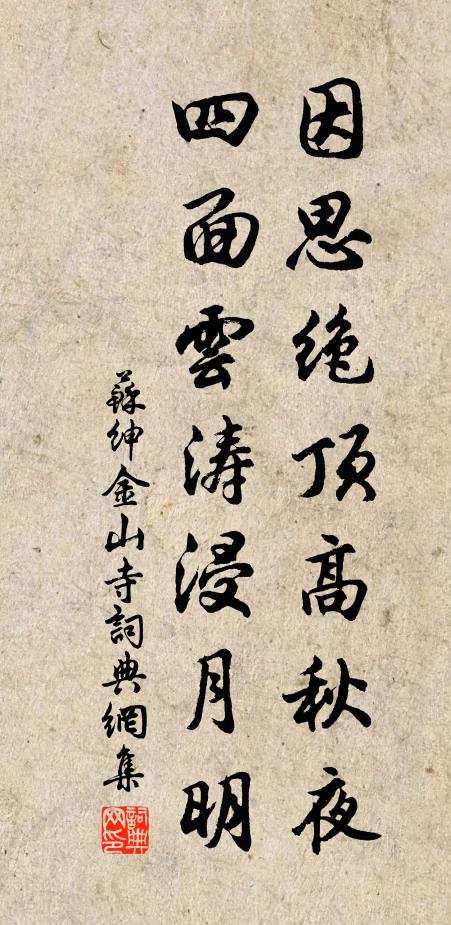 因思绝顶高秋夜
四面雲涛浸月明
蘇紳金山寺詞典網集
詞典网印